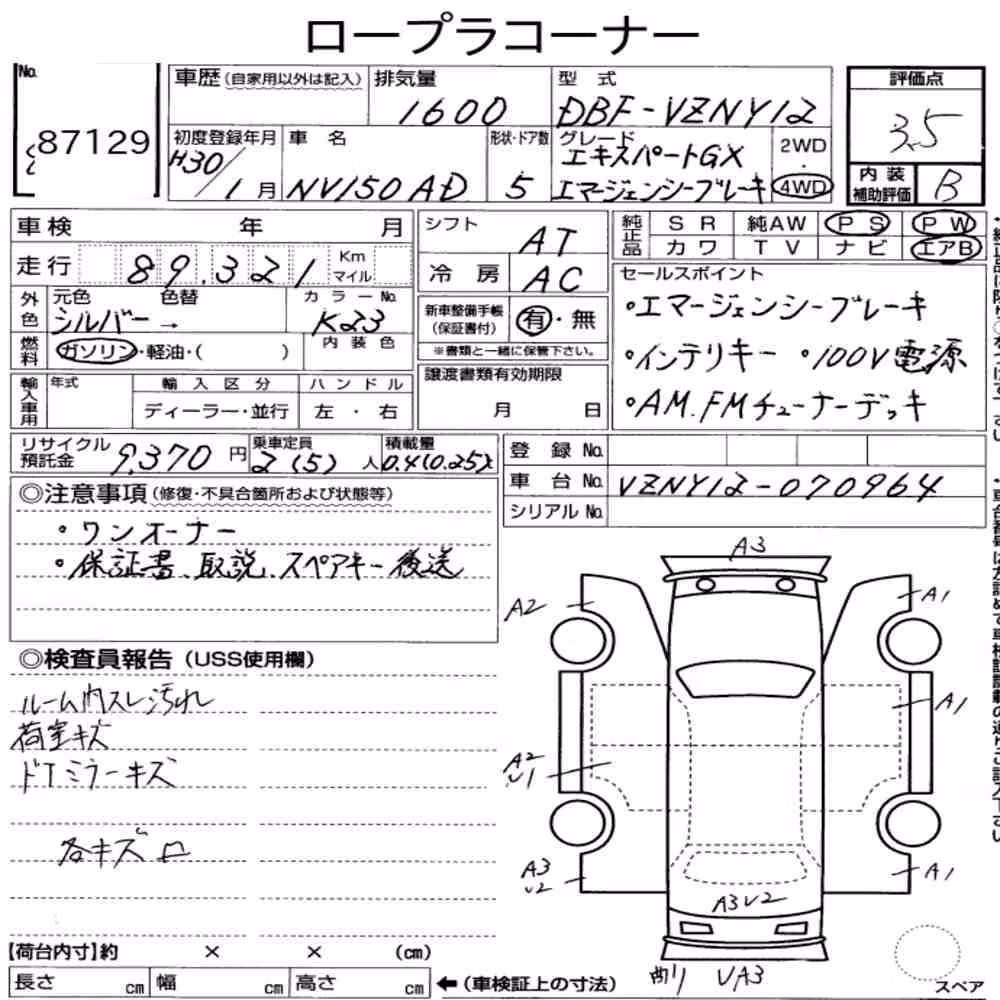 ロープラコーナー
No.
87129
車歴(自家用以外は記入)
排気量
1600
型式
DBF-VZNY12
評価点
3.5
初度登録年月
H30/1月
車名
NV150 AD
形状・ドア数
5
グレード
エキスパートGX
エマージェンシーブレーキ
2WD
・
4WD
内装
補助評価
B
車検 年 月
走行 89.321 Km
マイル
外色
元色 色替
シルバー→
カラーNo.
K23
燃料
ガソリン・軽油・( )
内装色
輸入車用
年式
輸入区分
ディーラー・並行
ハンドル
左・右
シフト
AT
冷房
AC
新車整備手帳
(保証書付)
有・無
※書類と一緒に保管下さい。
譲渡書類有効期限
月 日
純正品
SR 純AW PS PW
カワ TV ナビ エアB
セールスポイント
・エマージェンシーブレーキ
・インテリキー ・100V電源
・AM.FMチューナーデッキ
リサイクル
預託金
9,370円
乗車定員
2(5)人
積載量
0.4(0.25)t
登録No.
車台No. VZNY12-070964
シリアルNo.
◎注意事項(修復・不具合箇所および状態等)
・ワンオーナー
・保証書、取説、スペアキー後送
◎検査員報告(USS使用欄)
ルーム内スレ汚れ
荷室キズ
ドアミラーキズ
各キズ凹
A3
A2
A1
A1
A2
U1
A3
U2
A1
A3U2
曲り UA3
スペア
【荷台内寸】約 × × (cm)
長さ cm 幅 cm 高さ cm
←(車検証上の寸法)